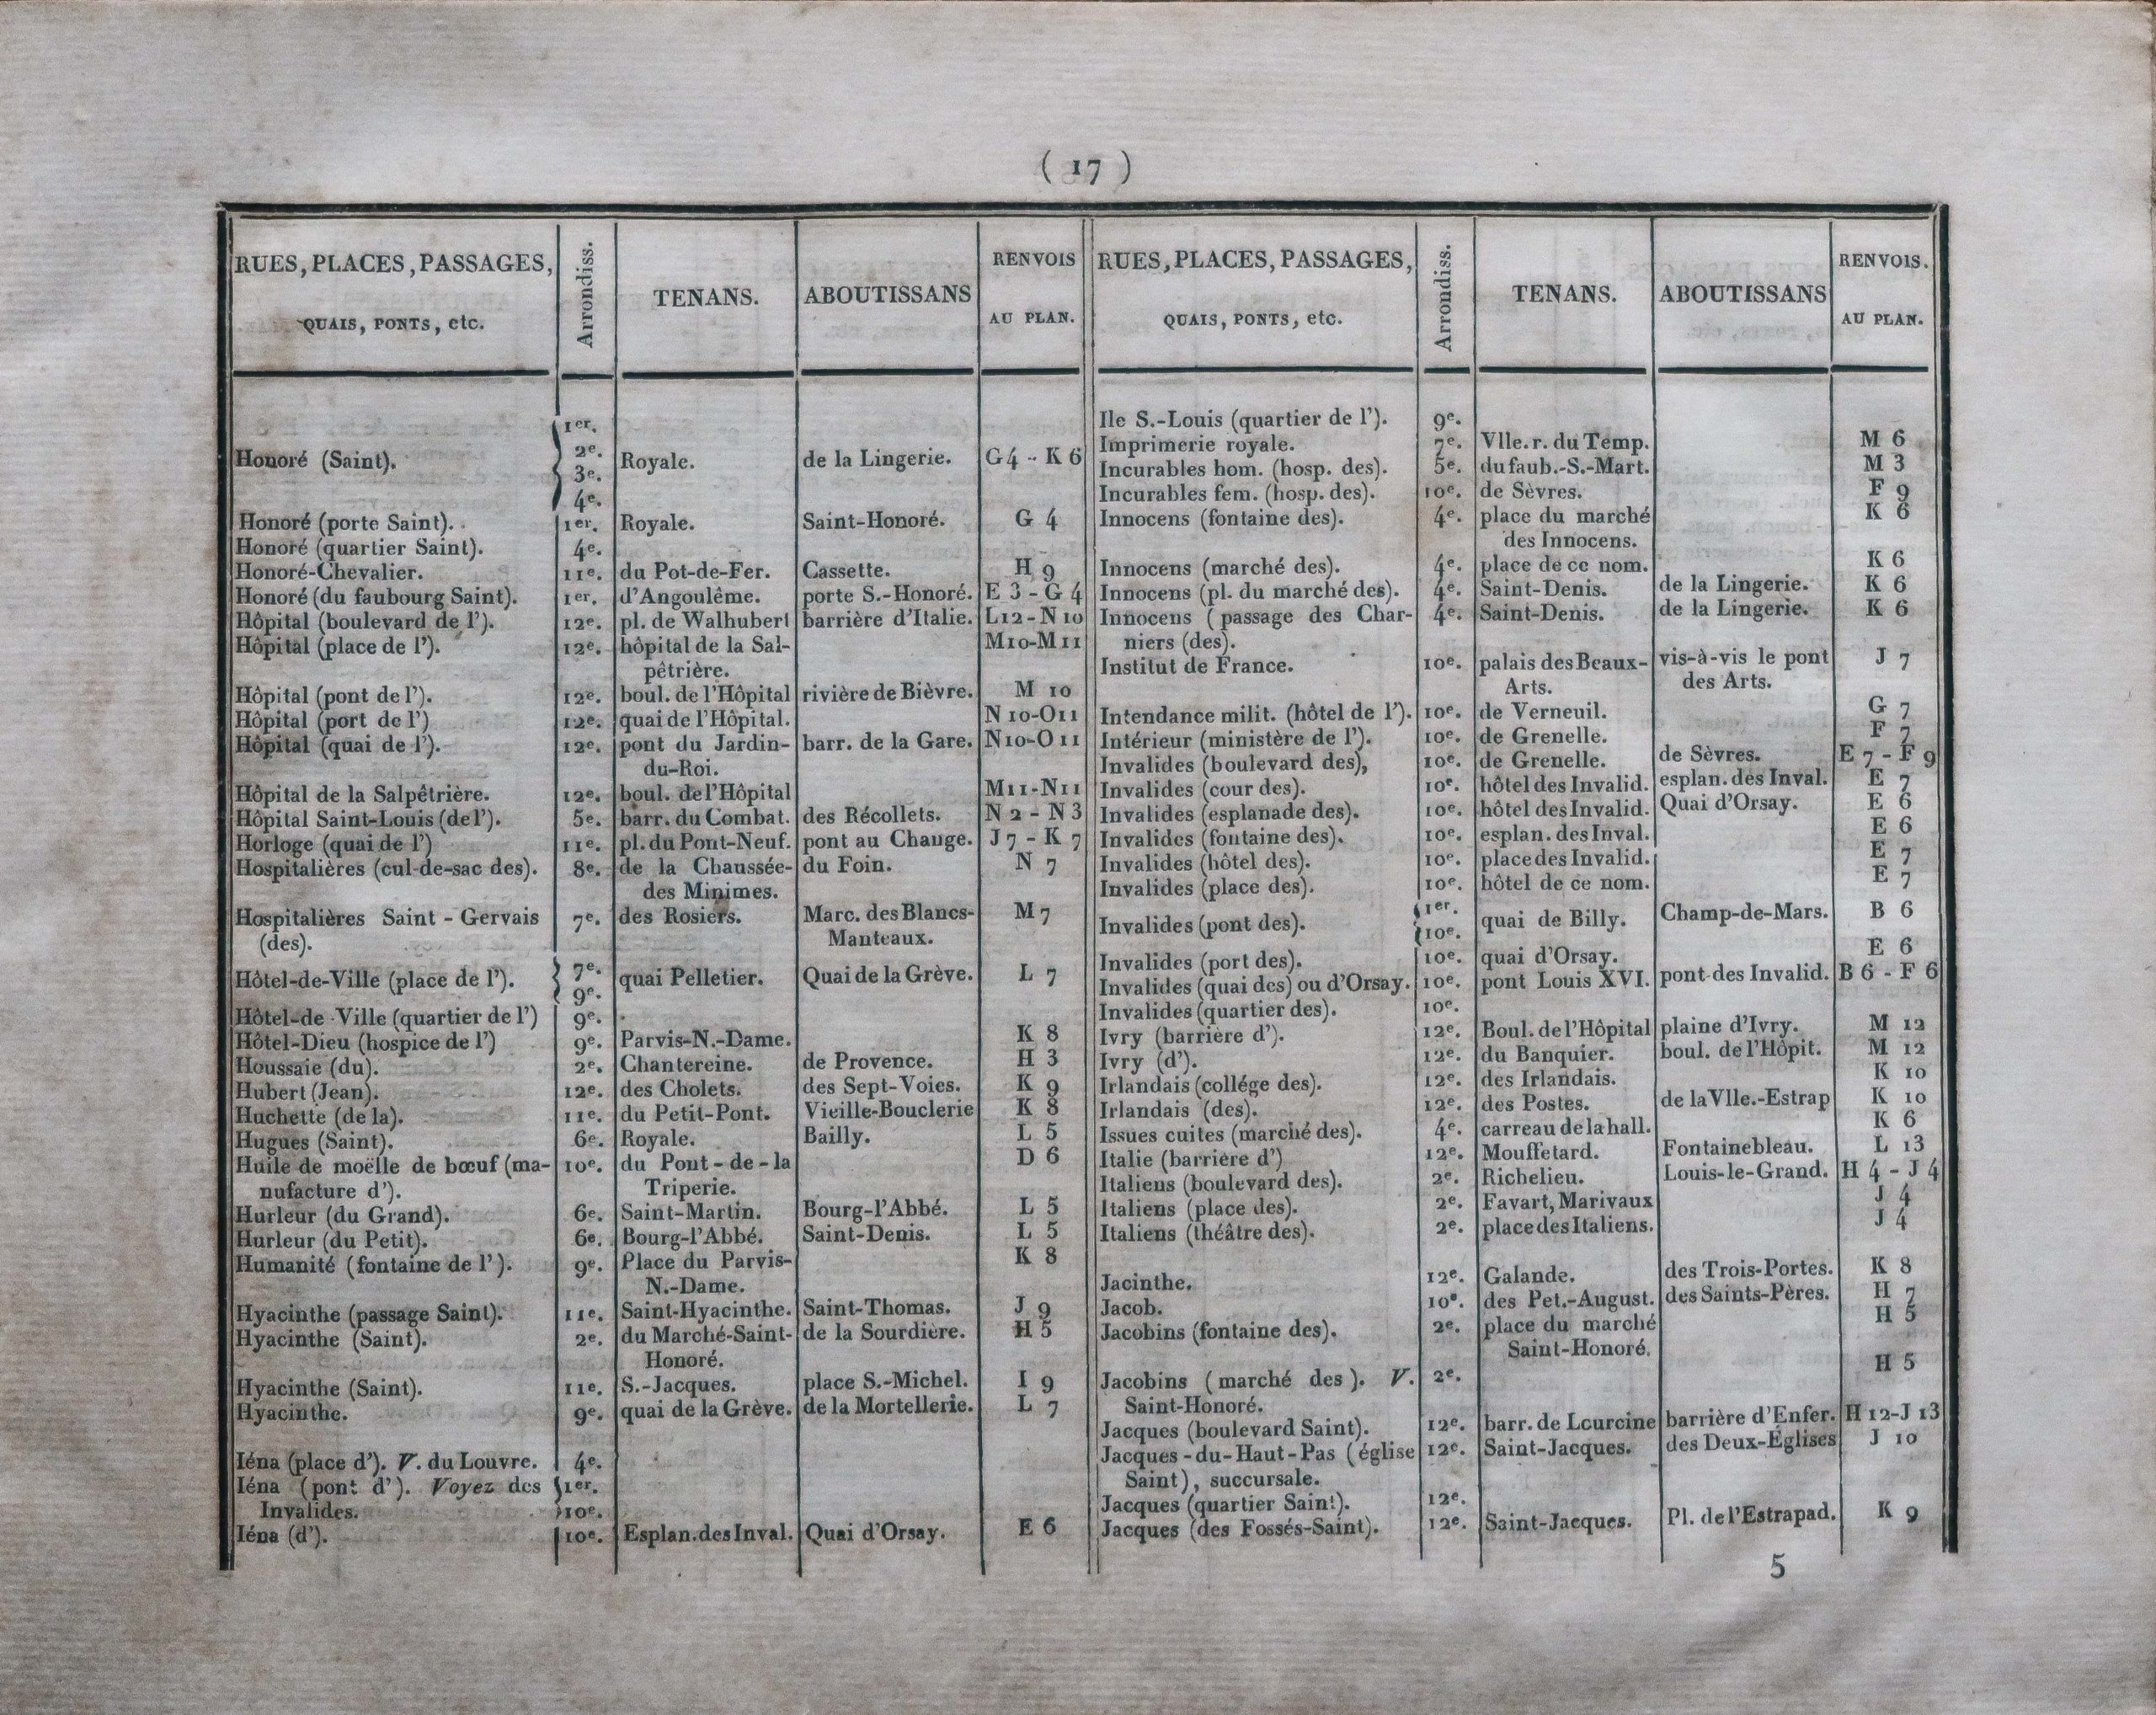 ( 17 )
RUES, PLACES, PASSAGES,
QUAIS, PONTS, etc.
Arrondiss.
TENANS.
ABOUTISSANS
RENVOIS
AU PLAN.
1er.
2e.
Honoré (Saint). Royale. de la Lingerie. G 4 - K 6
3e.
4e.
Honoré (porte Saint). 1er. Royale. Saint-Honoré. G 4
Honoré (quartier Saint). 4e.
Honoré-Chevalier. 11e. du Pot-de-Fer. Cassette. H 9
Honoré (du faubourg Saint). 1er. d'Angoulême. porte S.-Honoré. E 3 - G 4
Hôpital (boulevard de l'). 12e. pl. de Walhubert barrière d'Italie. L12-N10
Hôpital (place de l'). 12e. hôpital de la Sal- M10-M11
pêtrière.
Hôpital (pont de l'). 12e. boul. de l'Hôpital rivière de Bièvre. M 10
Hôpital (port de l') 12e. quai de l'Hôpital. N 10-O11
Hôpital (quai de l'). 12e. pont du Jardin- barr. de la Gare. N10-O11
du-Roi.
Hôpital de la Salpêtrière. 12e. boul. de l'Hôpital M11-N11
Hôpital Saint-Louis (de l'). 5e. barr. du Combat. des Récollets. N 2 - N 3
Horloge (quai de l') 11e. pl. du Pont-Neuf. pont au Change. J 7 - K 7
Hospitalières (cul-de-sac des). 8e. de la Chaussée- du Foin. N 7
des Minimes.
Hospitalières Saint - Gervais 7e. des Rosiers. Marc. des Blancs- M 7
(des). Manteaux.
Hôtel-de-Ville (place de l'). 7e. quai Pelletier. Quai de la Grève. L 7
9e.
Hôtel-de-Ville (quartier de l') 9e.
Hôtel-Dieu (hospice de l') 9e. Parvis-N.-Dame. K 8
Houssaie (du). 2e. Chantereine. de Provence. H 3
Hubert (Jean). 12e. des Cholets. des Sept-Voies. K 9
Huchette (de la). 11e. du Petit-Pont. Vieille-Bouclerie K 8
Hugues (Saint). 6e. Royale. Bailly. L 5
Huile de moëlle de bœuf (ma- 10e. du Pont - de - la D 6
nufacture d'). Triperie.
Hurleur (du Grand). 6e. Saint-Martin. Bourg-l'Abbé. L 5
Hurleur (du Petit). 6e. Bourg-l'Abbé. Saint-Denis. L 5
Humanité (fontaine de l'). 9e. Place du Parvis- K 8
N.-Dame.
Hyacinthe (passage Saint). 11e. Saint-Hyacinthe. Saint-Thomas. J 9
Hyacinthe (Saint). 2e. du Marché-Saint- de la Sourdière. H 5
Honoré.
Hyacinthe (Saint). 11e. S.-Jacques. place S.-Michel. I 9
Hyacinthe. 9e. quai de la Grève. de la Mortellerie. L 7
Iéna (place d'). V. du Louvre. 4e.
Iéna (pont d'). Voyez des 1er.
Invalides. 10e.
Iéna (d'). 10e. Esplan. des Inval. Quai d'Orsay. E 6
RUES, PLACES, PASSAGES,
QUAIS, PONTS, etc.
Arrondiss.
TENANS.
ABOUTISSANS
RENVOIS.
AU PLAN.
Ile S.-Louis (quartier de l'). 9e.
Imprimerie royale. 7e. Vlle. r. du Temp. M 6
Incurables hom. (hosp. des). 5e. du faub.-S.-Mart. M 3
Incurables fem. (hosp. des). 10e. de Sèvres. F 9
Innocens (fontaine des). 4e. place du marché K 6
des Innocens.
Innocens (marché des). 4e. place de ce nom. K 6
Innocens (pl. du marché des). 4e. Saint-Denis. de la Lingerie. K 6
Innocens ( passage des Char- 4e. Saint-Denis. de la Lingerie. K 6
niers (des).
Institut de France. 10e. palais des Beaux- vis-à-vis le pont J 7
Arts. des Arts.
Intendance milit. (hôtel de l'). 10e. de Verneuil. G 7
Intérieur (ministère de l'). 10e. de Grenelle. F 7
Invalides (boulevard des), 10e. de Grenelle. de Sèvres. E 7 - F 9
Invalides (cour des). 10e. hôtel des Invalid. esplan. des Inval. E 7
Invalides (esplanade des). 10e. hôtel des Invalid. Quai d'Orsay. E 6
Invalides (fontaine des). 10e. esplan. des Inval. E 6
Invalides (hôtel des). 10e. place des Invalid. E 7
Invalides (place des). 10e. hôtel de ce nom. E 7
Invalides (pont des). 1er. quai de Billy. Champ-de-Mars. B 6
10e.
Invalides (port des). 10e. quai d'Orsay. E 6
Invalides (quai des) ou d'Orsay. 10e. pont Louis XVI. pont des Invalid. B 6 - F 6
Invalides (quartier des). 10e.
Ivry (barrière d'). 12e. Boul. de l'Hôpital plaine d'Ivry. M 12
Ivry (d'). 12e. du Banquier. boul. de l'Hôpit. M 12
Irlandais (collége des). 12e. des Irlandais. K 10
Irlandais (des). 12e. des Postes. de la Vlle.-Estrap K 10
Issues cuites (marché des). 4e. carreau de la hall. K 6
Italie (barrière d') 12e. Mouffetard. Fontainebleau. L 13
Italiens (boulevard des). 2e. Richelieu. Louis-le-Grand. H 4 - J 4
Italiens (place des). 2e. Favart, Marivaux J 4
Italiens (théâtre des). 2e. place des Italiens. J 4
Jacinthe. 12e. Galande. des Trois-Portes. K 8
Jacob. 10e. des Pet.-August. des Saints-Pères. H 7
Jacobins (fontaine des). 2e. place du marché H 5
Saint-Honoré.
Jacobins ( marché des ). V. 2e. H 5
Saint-Honoré.
Jacques (boulevard Saint). 12e. barr. de Lourcine barrière d'Enfer. H 12-J 13
Jacques - du - Haut - Pas ( église 12e. Saint-Jacques. des Deux-Églises J 10
Saint), succursale.
Jacques (quartier Saint). 12e.
Jacques (des Fossés-Saint). 12e. Saint-Jacques. Pl. de l'Estrapad. K 9
5